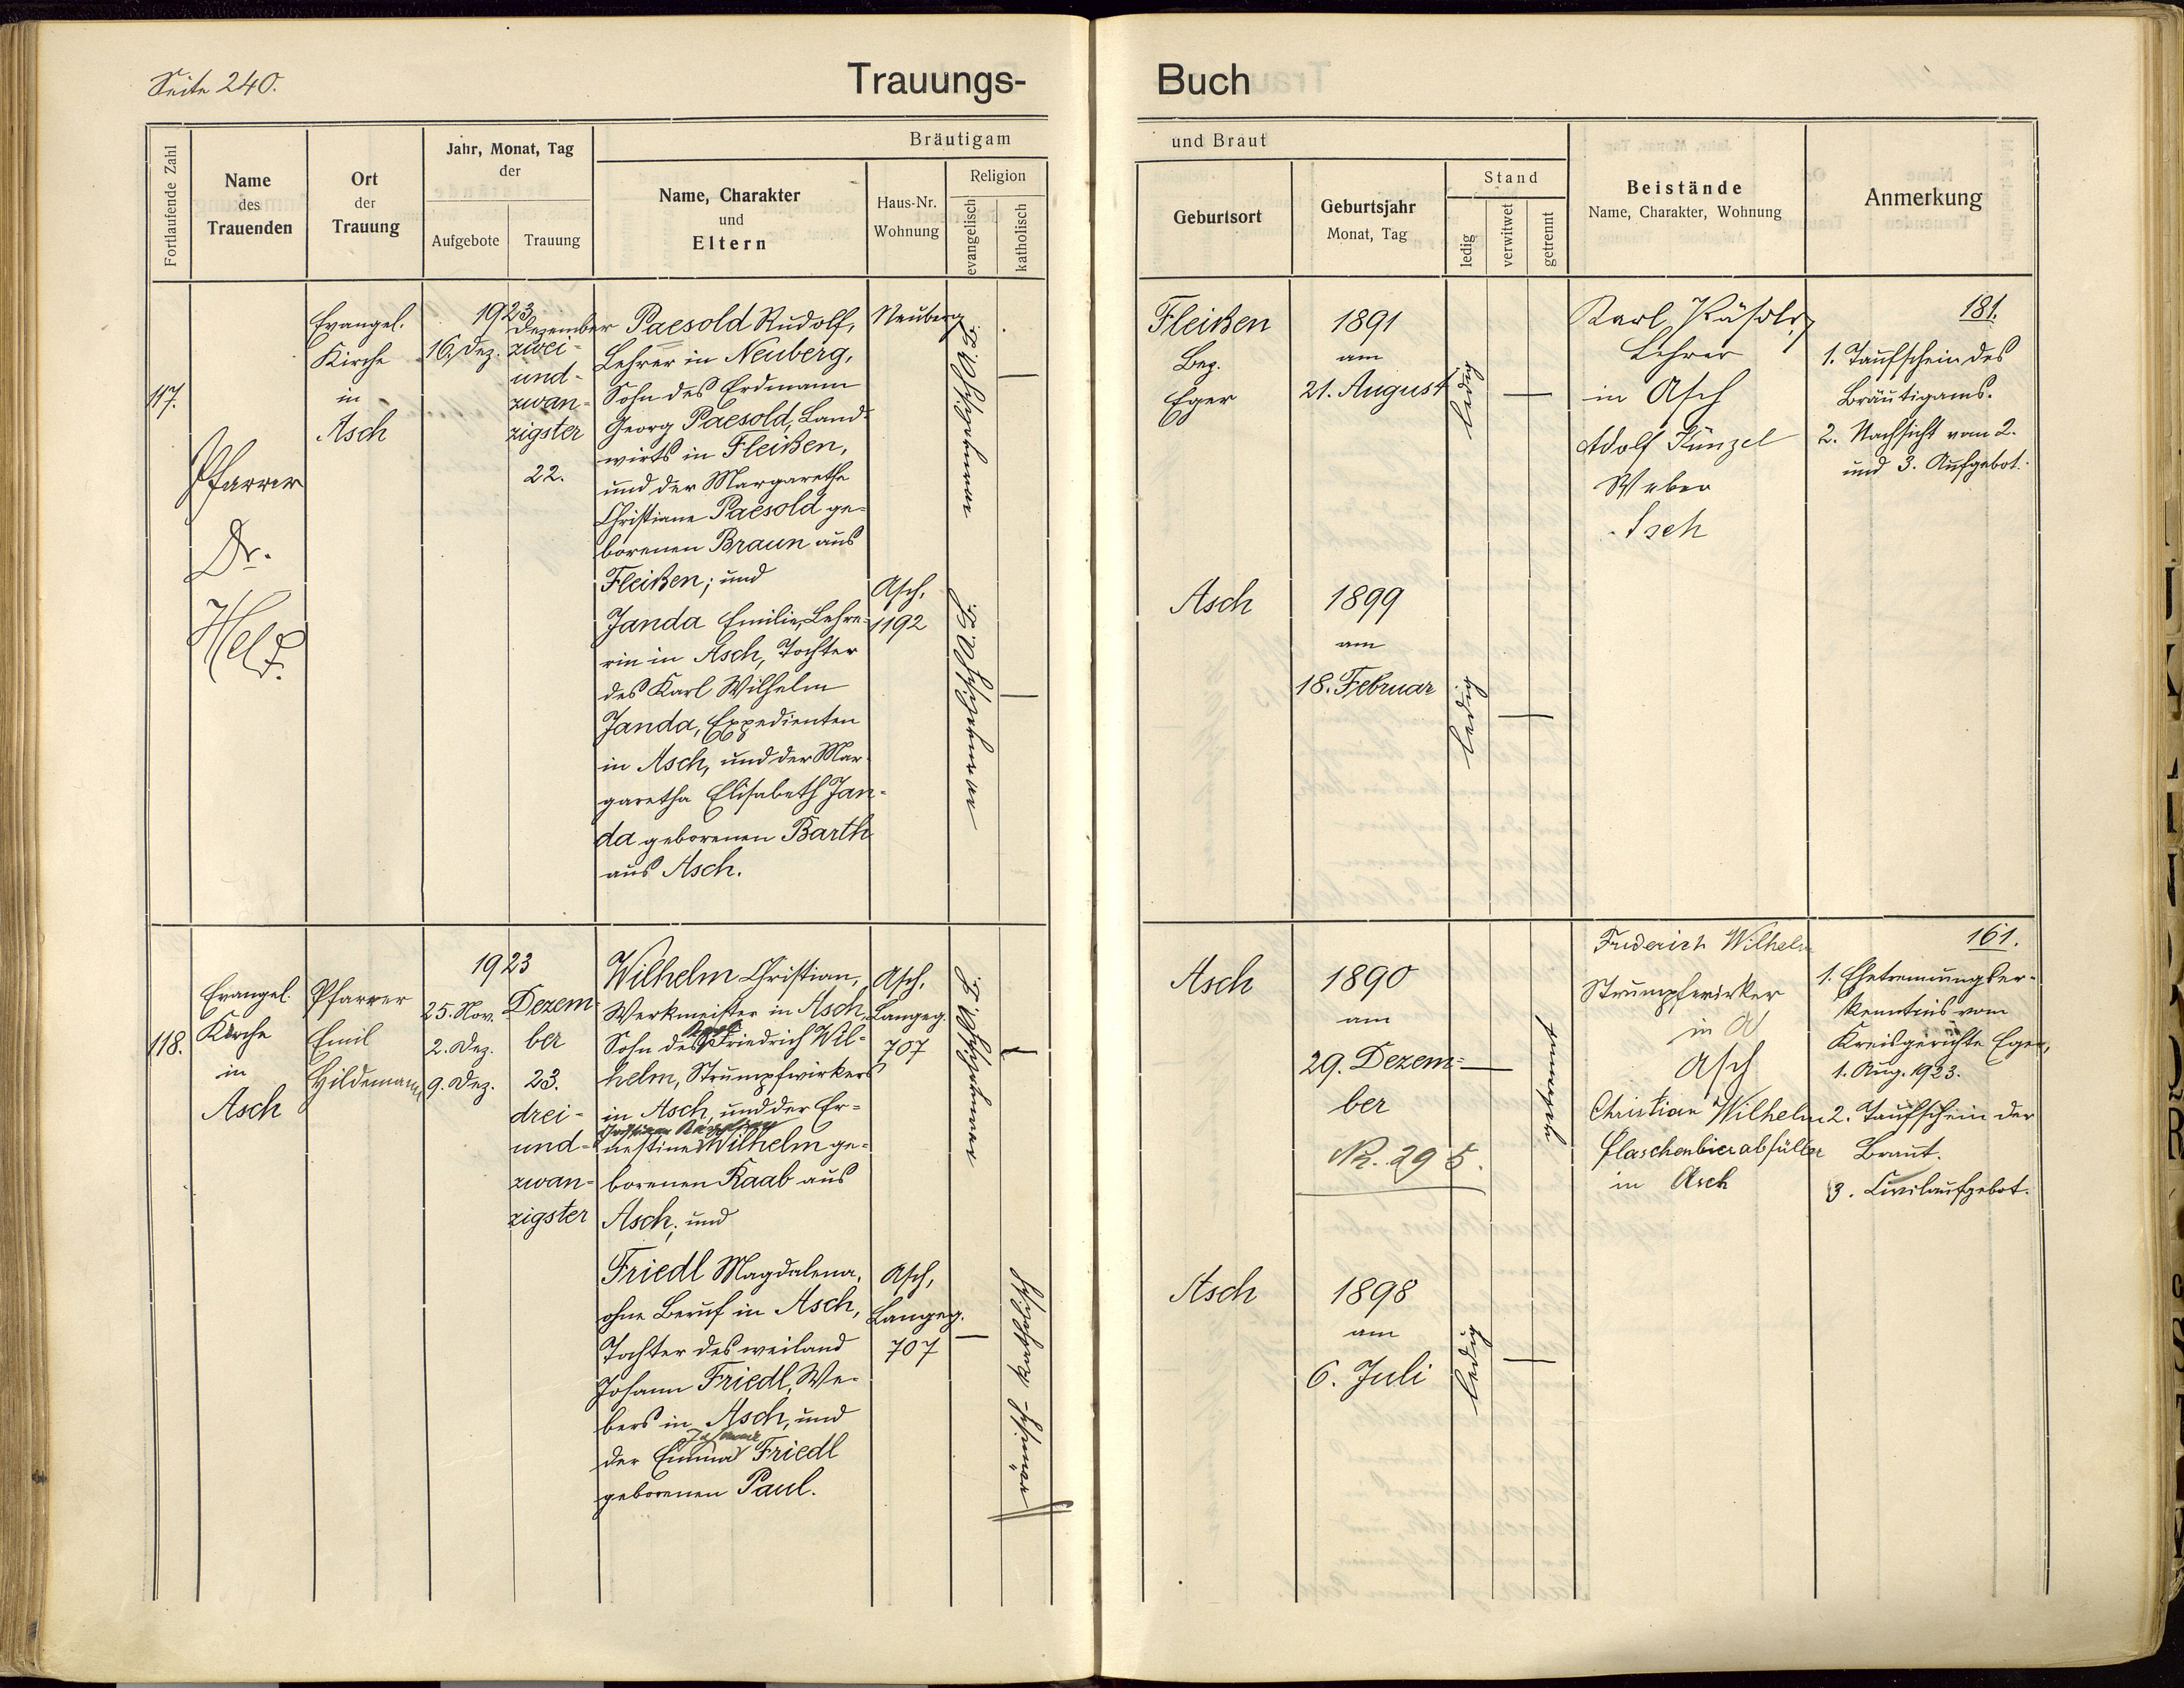 Seite 240.
Trauungs-
Buch
Fortlaufende Zahl
Name
des
Trauenden
Ort
der
Trauung
Jahr, Monat, Tag
der
Aufgebote
Trauung
Bräutigam
Name, Charakter
und
Eltern
Haus-Nr.
Wohnung
Religion
evangelisch
katholisch
und Braut
Geburtsort
Geburtsjahr
Monat, Tag
Stand
ledig
verwitwet
getrennt
Beistände
Name, Charakter, Wohnung
Anmerkung
117.
Pfarrer
Dr.
Held.
Evangel.
Kirche
in
Asch
1923
16. Dez.
Dezember
zwei-
und-
zwan-
zigster
22.
Paesold Rudolf,
Lehrer in Neuberg,
Sohn des Erdmann
Georg Paesold, Land-
wirts in Fleißen,
und der Margarethe
Christiane Paesold ge-
borenen Braun aus
Fleißen; und
Janda Emilie, Lehre-
rin in Asch, Tochter
des Karl Wilhelm
Janda, Expedienten
in Asch, und der Mar-
garetha Elisabeth Jan-
da geborenen Barth
aus Asch.
Neuberg
Asch,
1192
evangelisch A. B.
evangelisch A. B.
Fleißen
Bez.
Eger
1891
am
21. August
ledig
Asch
1899
am
18. Februar
ledig
Karl Päsold,
Lehrer
in Asch
Adolf Künzel
Weber
Asch
181.
1. Taufschein des
Bräutigams.
2. Nachsicht vom 2.
und 3. Aufgebot.
118.
Evangel.
Kirche
in
Asch
Pfarrer
Emil
Hildemann
1923
25. Nov.
2. Dez.
9. Dez.
Dezem-
ber
23.
drei-
und-
zwan-
zigster
Wilhelm Christian,
Werkmeister in Asch,
Sohn des Friedrich Wil-
helm, Strumpfwirkers
in Asch, und der Er-
nestine Wilhelm ge-
borenen Raab aus
Asch; und
Friedl Magdalena,
ohne Beruf in Asch,
Tochter des weiland
Johann Friedl, We-
bers in Asch, und
der Emma Friedl
geborenen Paul.
Asch,
Langeg.
707
Asch,
Langeg.
707
evangelisch A. B.
römisch-katholisch
Asch
1890
am
29. Dezem-
ber
Nr. 295.
getrennt
Asch
1898
am
6. Juli
ledig
Friderich Wilhelm
Strumpfwirker
in A
Asch
Christian Wilhelm
Flaschenbierabfüller
in Asch
161.
1. Ehetrennungser-
kenntnis vom
Kreisgerichte Eger,
1. Aug. 1923.
2. Taufschein der
Braut.
3. Civilaufgebot.